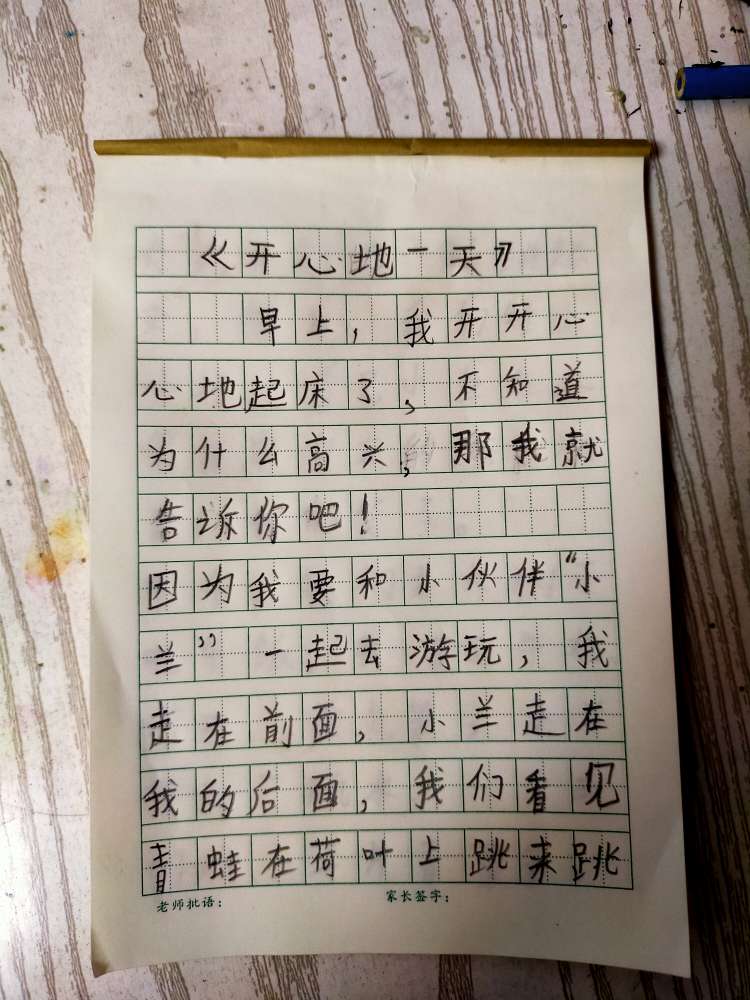 《开心地一天》
早上，我开开心
心地起床了，不知道
为什么高兴，那我就
告诉你吧！
因为我要和小伙伴“小
兰”一起去游玩，我
走在前面，小兰走在
我的后面，我们看见
青蛙在荷叶上跳来跳
老师批语： 家长签字：